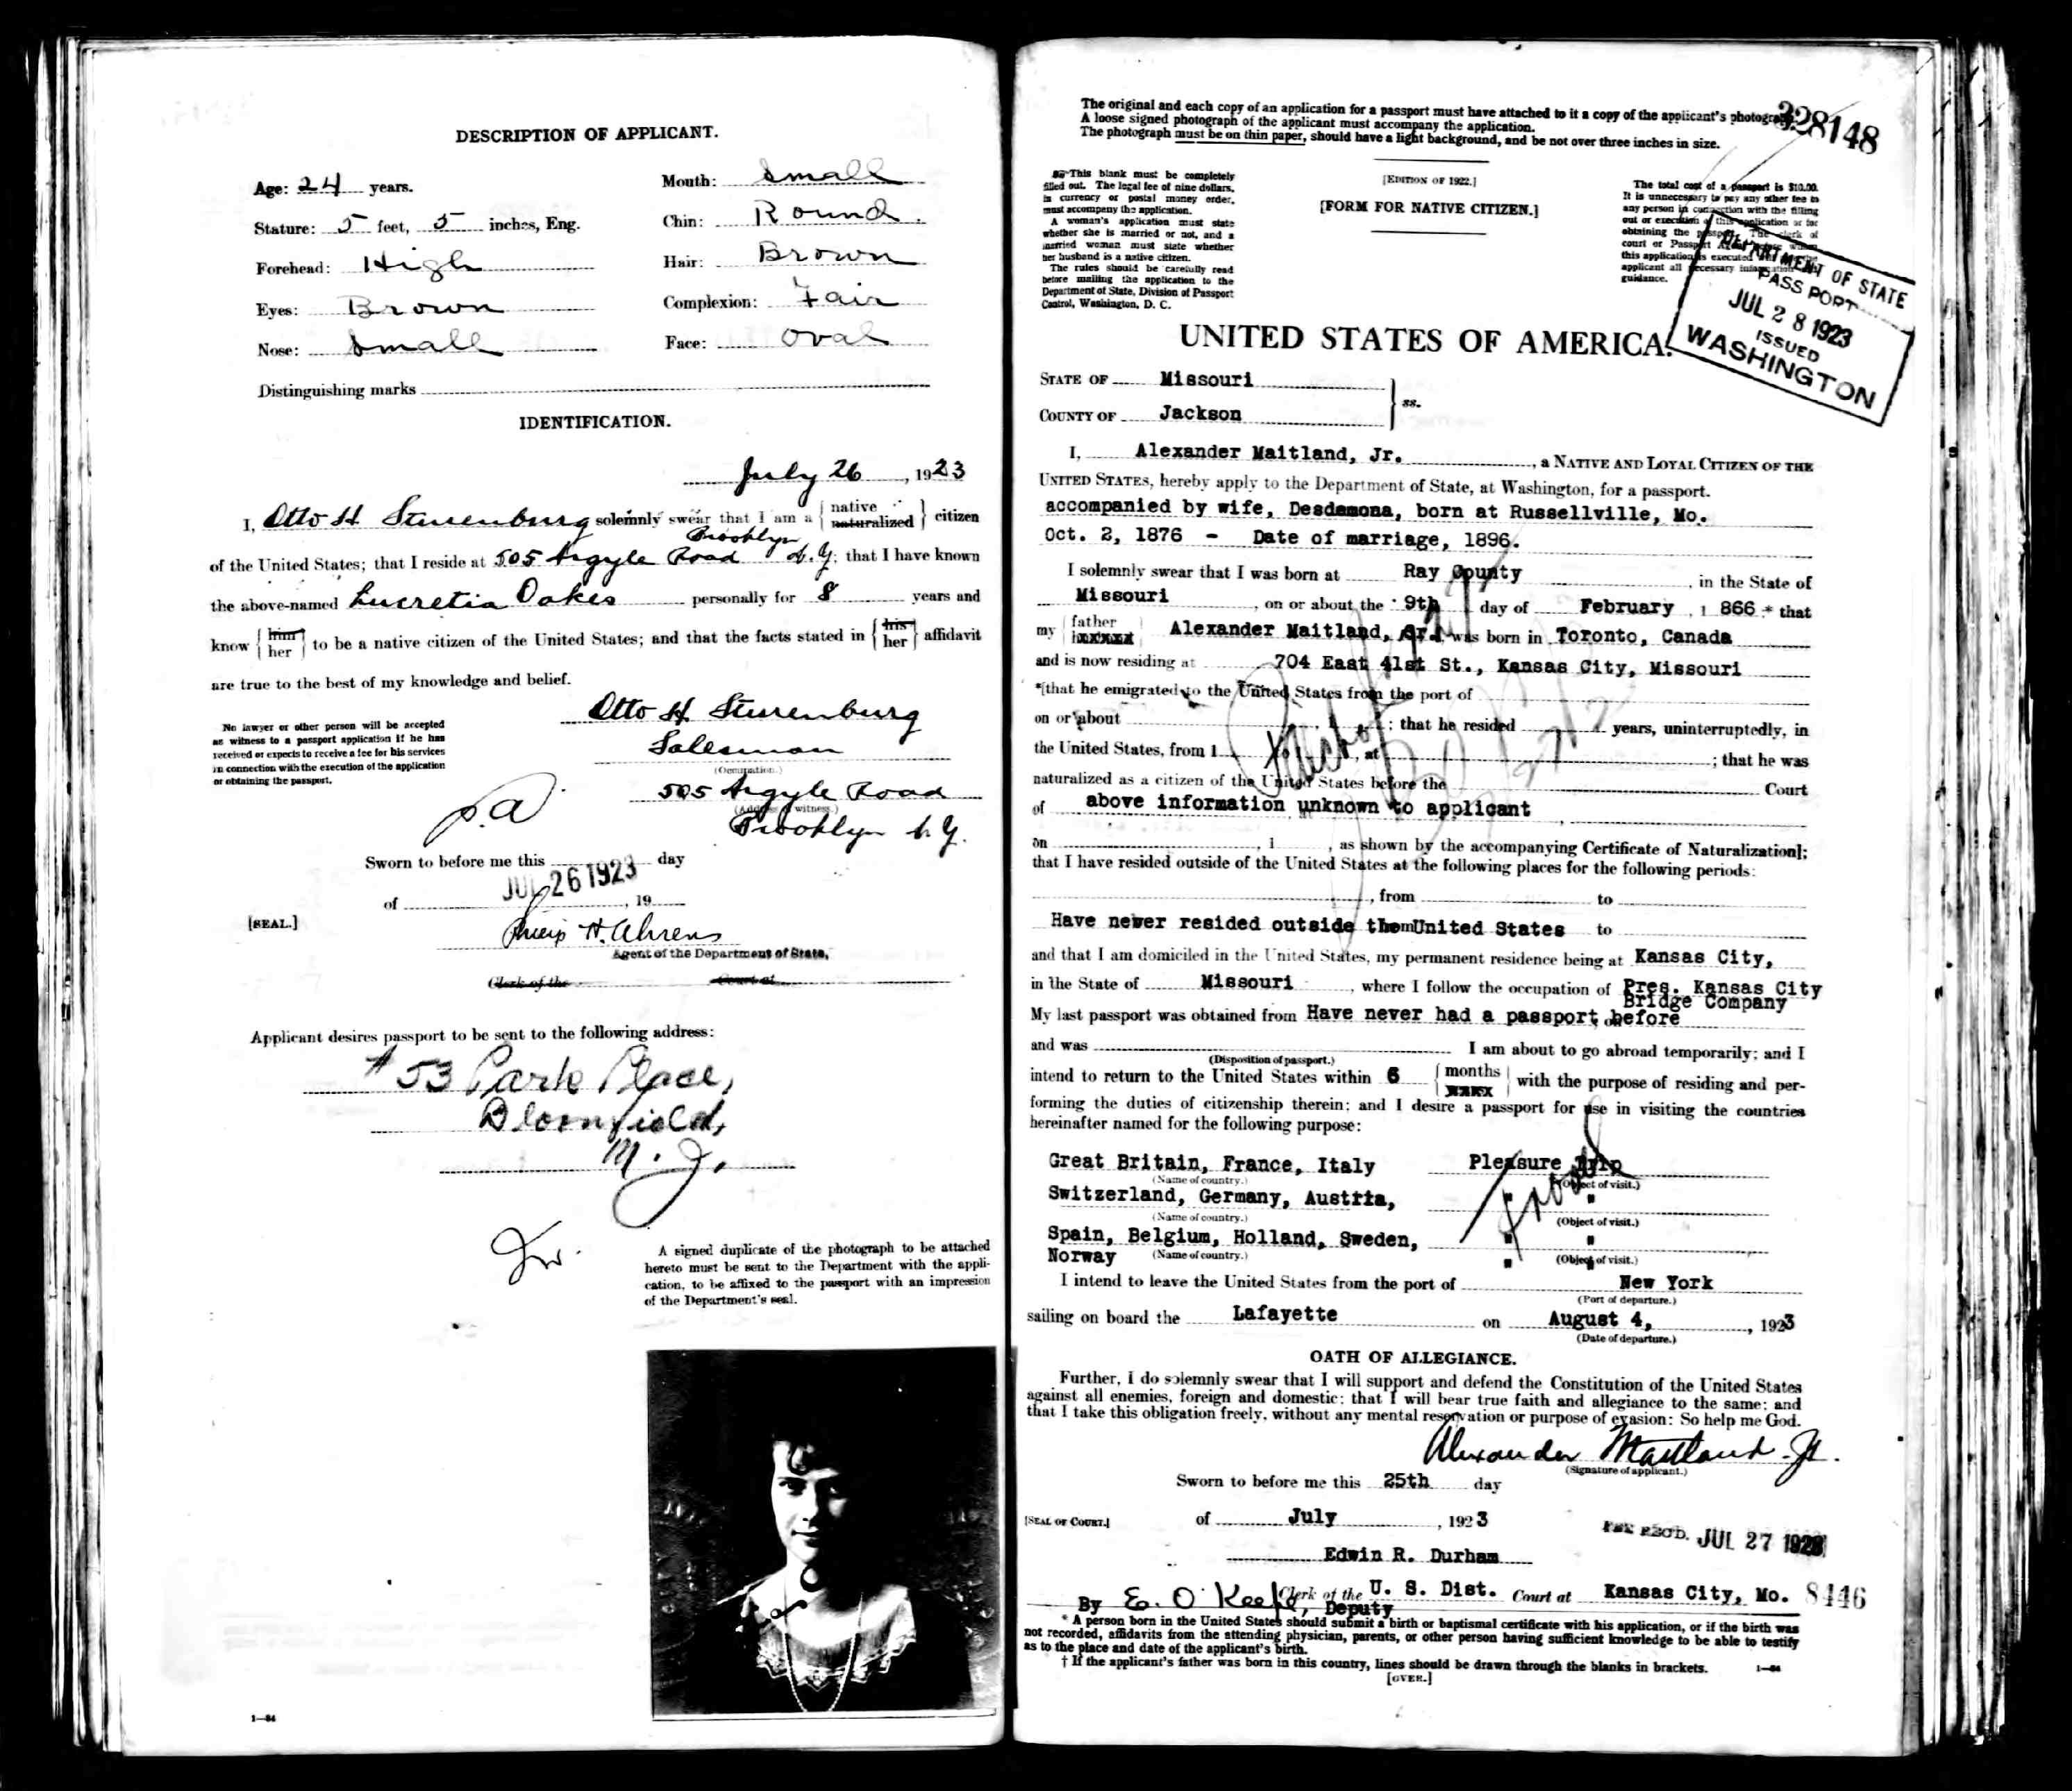 DESCRIPTION OF APPLICANT.
Age: 24 years.
Mouth: Small
Stature: 5 feet, 5 inches, Eng.
Chin: Round.
Forehead: High
Hair: Brown
Eyes: Brown
Complexion: Fair
Nose: Small
Face: Oval
Distinguishing marks
IDENTIFICATION.
July 26, 1923
I, Otto H Sturenburg solemnly swear that I am a { native naturalized } citizen
Brooklyn
of the United States; that I reside at 505 Argyle Road N.Y; that I have known
the above-named Lucretia Oakes personally for 8 years and
know { him her } to be a native citizen of the United States; and that the facts stated in { his her } affidavit
are true to the best of my knowledge and belief.
Otto H Sturenburg
No lawyer or other person will be accepted
as witness to a passport application if he has
received or expects to receive a fee for his services
in connection with the execution of the application
or obtaining the passport.
Salesman
(Occupation.)
505 Argyle Road
(Address of witness.)
Brooklyn N.Y.
P.A
Sworn to before me this day
JUL 26 1923
of , 19
[SEAL.]
Philip H. Ahrens
Agent of the Department of State.
Clerk of the Court at
Applicant desires passport to be sent to the following address:
# 53 Park Place,
Bloomfield,
N. J.
A signed duplicate of the photograph to be attached
hereto must be sent to the Department with the appli-
cation, to be affixed to the passport with an impression
of the Department's seal.
1—84
The original and each copy of an application for a passport must have attached to it a copy of the applicant's photograph.
A loose signed photograph of the applicant must accompany the application.
The photograph must be on thin paper, should have a light background, and be not over three inches in size.
328148
This blank must be completely
filled out. The legal fee of nine dollars,
in currency or postal money order,
must accompany the application.
A woman's application must state
whether she is married or not, and a
married woman must state whether
her husband is a native citizen.
The rules should be carefully read
before mailing the application to the
Department of State, Division of Passport
Control, Washington, D. C.
[EDITION OF 1922.]
[FORM FOR NATIVE CITIZEN.]
The total cost of a passport is $10.00.
It is unnecessary to pay any other fee to
any person in connection with the filling
out or execution of this application or for
obtaining the passport. The clerk of
court or Passport
this application is executed
applicant all necessary information
guidance.
DEPARTMENT OF STATE
PASSPORT
JUL 28 1923
ISSUED
WASHINGTON
UNITED STATES OF AMERICA.
STATE OF Missouri
ss.
COUNTY OF Jackson
I, Alexander Maitland, Jr., a NATIVE AND LOYAL CITIZEN OF THE
UNITED STATES, hereby apply to the Department of State, at Washington, for a passport.
accompanied by wife, Desdemona, born at Russellville, Mo.
Oct. 2, 1876 - Date of marriage, 1896.
I solemnly swear that I was born at Ray County, in the State of
Missouri, on or about the 9th day of February, 1 866 * that
my { father xxxxxxx } Alexander Maitland, Sr. was born in Toronto, Canada
and is now residing at 704 East 41st St., Kansas City, Missouri
*[that he emigrated to the United States from the port of
on or about ; that he resided years, uninterruptedly, in
the United States, from 1 to , at ; that he was
naturalized as a citizen of the United States before the Court
of above information unknown to applicant
on , 1 , as shown by the accompanying Certificate of Naturalization];
that I have resided outside of the United States at the following places for the following periods:
, from to
Have never resided outside the United States to
and that I am domiciled in the United States, my permanent residence being at Kansas City,
in the State of Missouri, where I follow the occupation of Pres. Kansas City
Bridge Company
My last passport was obtained from Have never had a passport before
and was I am about to go abroad temporarily; and I
(Disposition of passport.)
intend to return to the United States within 6 { months xxxx } with the purpose of residing and per-
forming the duties of citizenship therein; and I desire a passport for use in visiting the countries
hereinafter named for the following purpose:
Great Britain, France, Italy Pleasure Trip
(Name of country.) (Object of visit.)
Switzerland, Germany, Austria, "
(Name of country.) (Object of visit.)
Spain, Belgium, Holland, Sweden, "
Norway (Name of country.) " (Object of visit.)
I intend to leave the United States from the port of New York
(Port of departure.)
sailing on board the Lafayette on August 4, , 1923
(Date of departure.)
OATH OF ALLEGIANCE.
Further, I do solemnly swear that I will support and defend the Constitution of the United States
against all enemies, foreign and domestic; that I will bear true faith and allegiance to the same; and
that I take this obligation freely, without any mental reservation or purpose of evasion: So help me God.
Alexander Maitland Jr.
(Signature of applicant.)
Sworn to before me this 25th day
[SEAL OF COURT.]
of July, 1923
FEE REC'D. JUL 27 1923
Edwin R. Durham
Clerk of the U. S. Dist. Court at Kansas City, Mo. 8446
By E. O'Keefe, Deputy
* A person born in the United States should submit a birth or baptismal certificate with his application, or if the birth was
not recorded, affidavits from the attending physician, parents, or other person having sufficient knowledge to be able to testify
as to the place and date of the applicant's birth.
† If the applicant's father was born in this country, lines should be drawn through the blanks in brackets.
1—84
[OVER.]